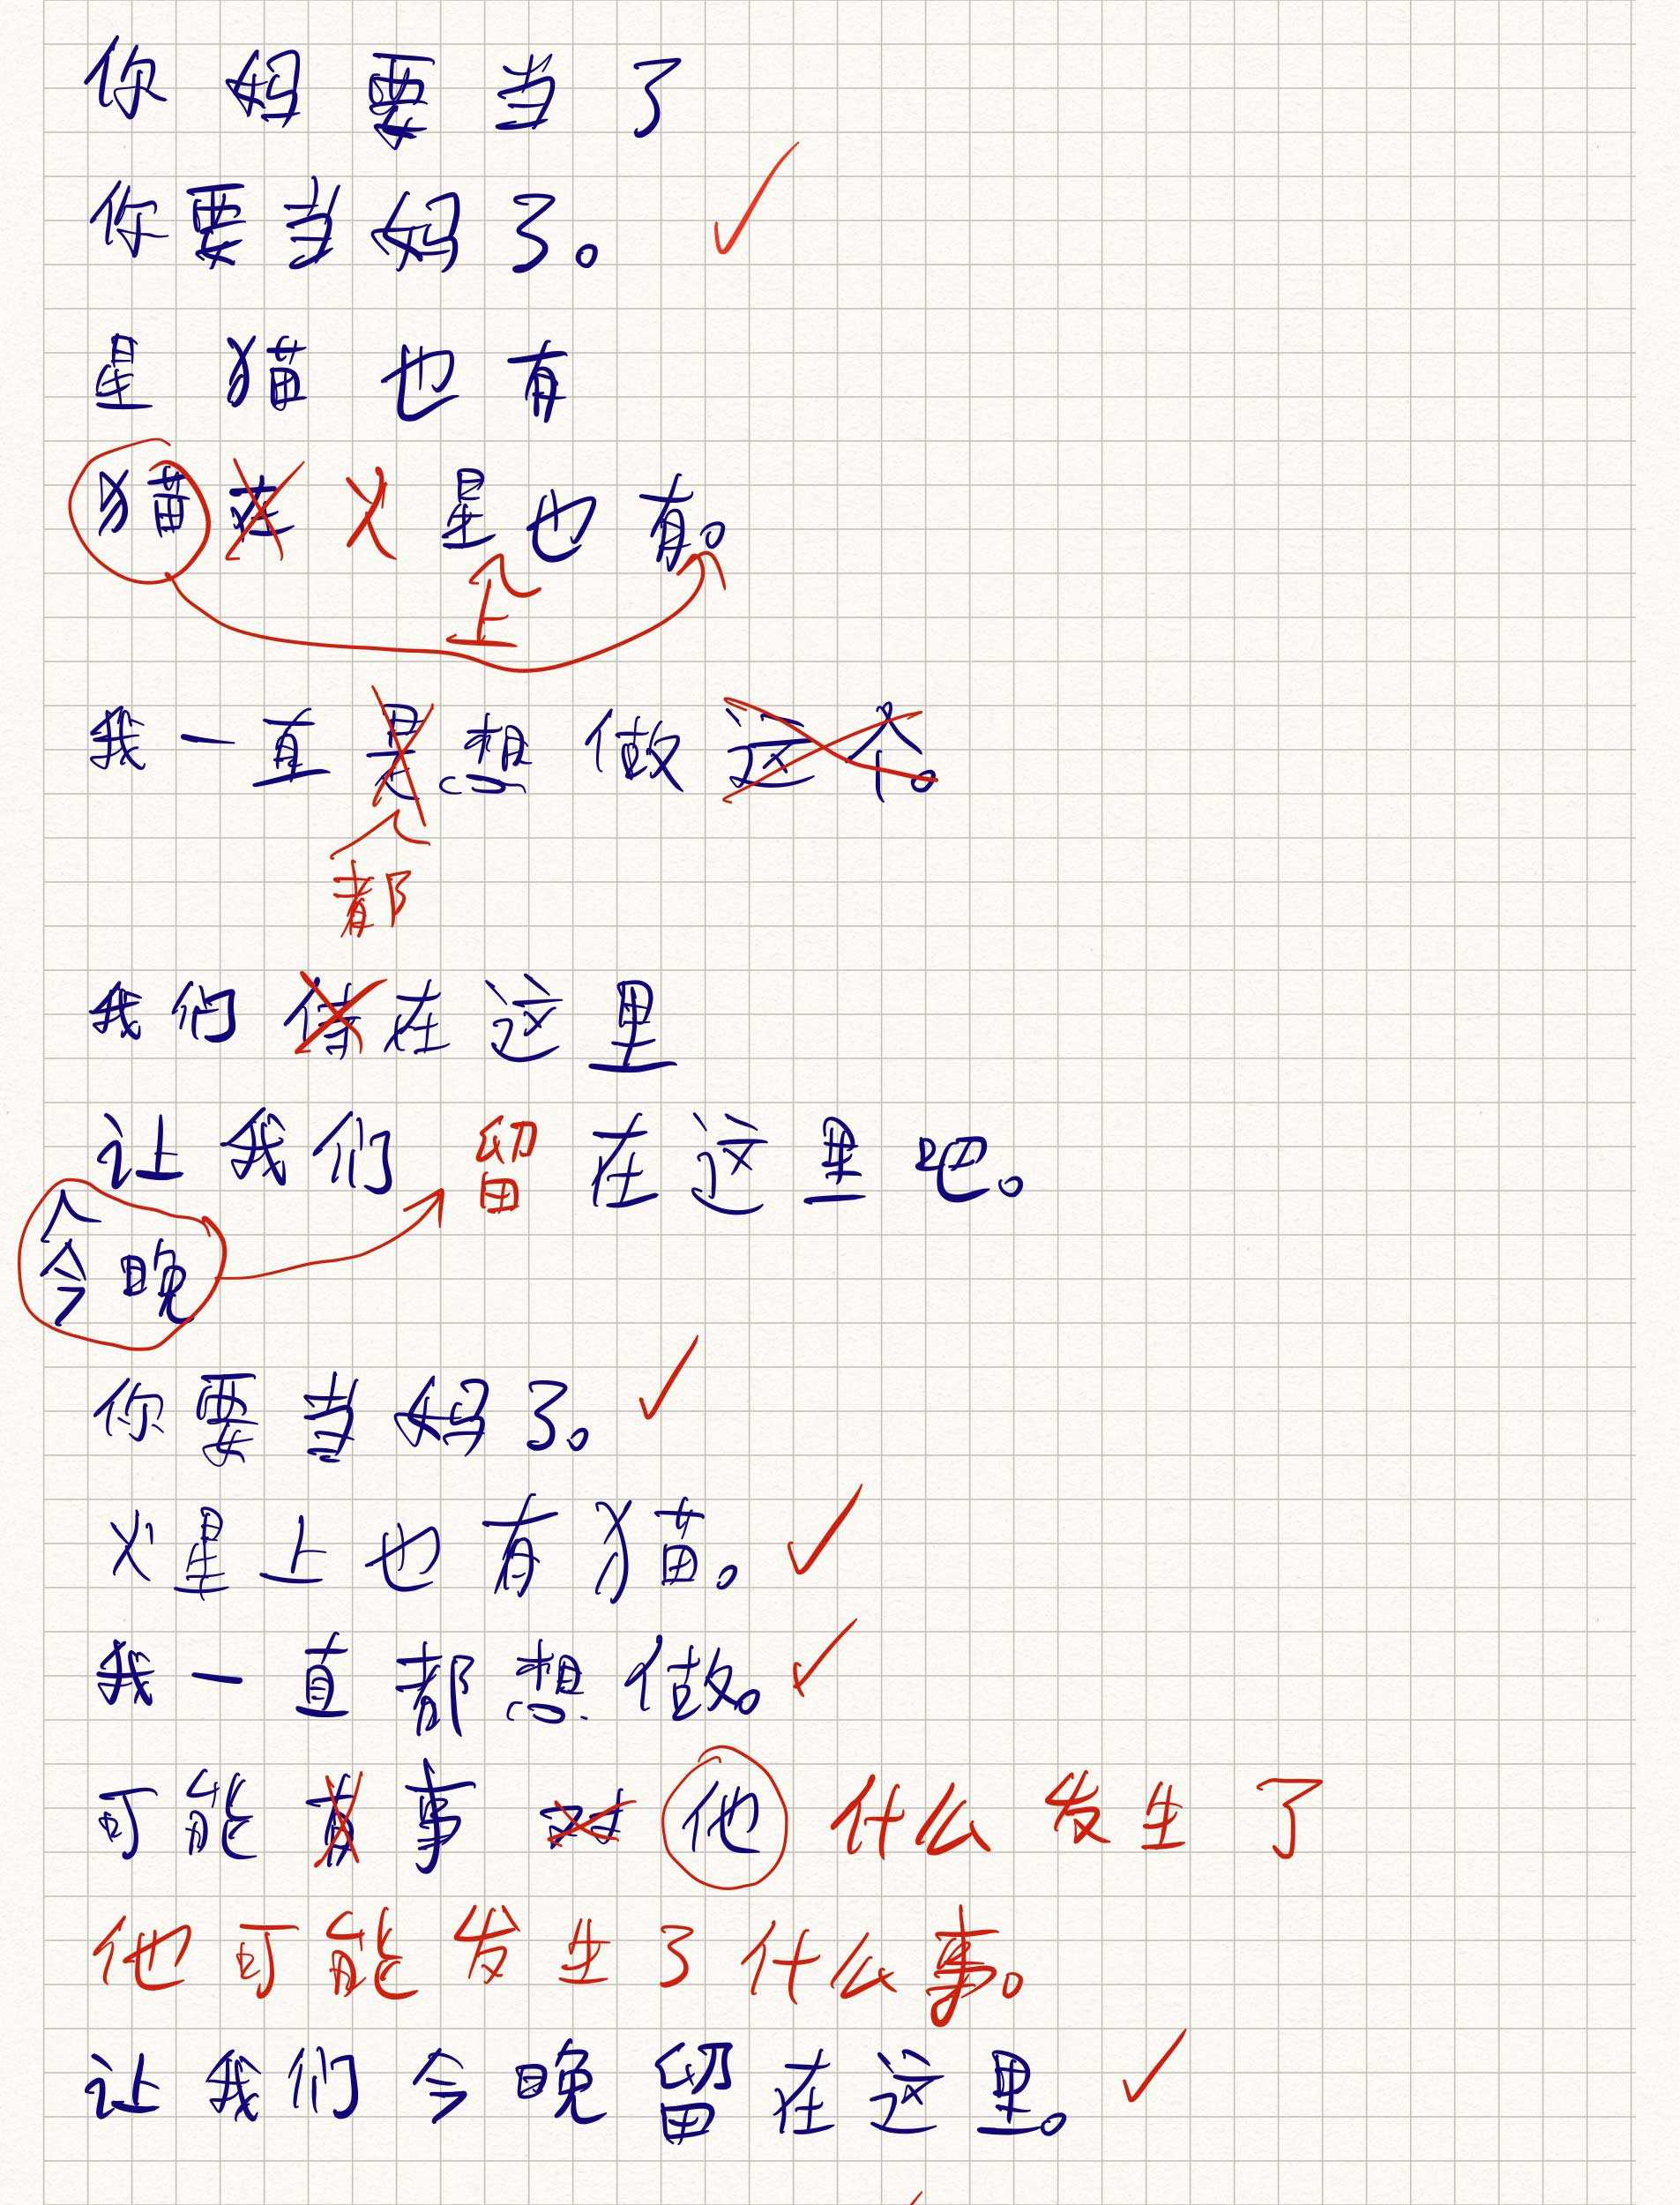 你妈要当了
你要当妈了。
星猫也有
猫在火星也有。
上
我一直是想做这个。
都
我们待在这里
让我们留在这里吧。
今晚
你要当妈了。
火星上也有猫。
我一直都想做。
可能有事对他什么发生了
他可能发生了什么事。
让我们今晚留在这里。